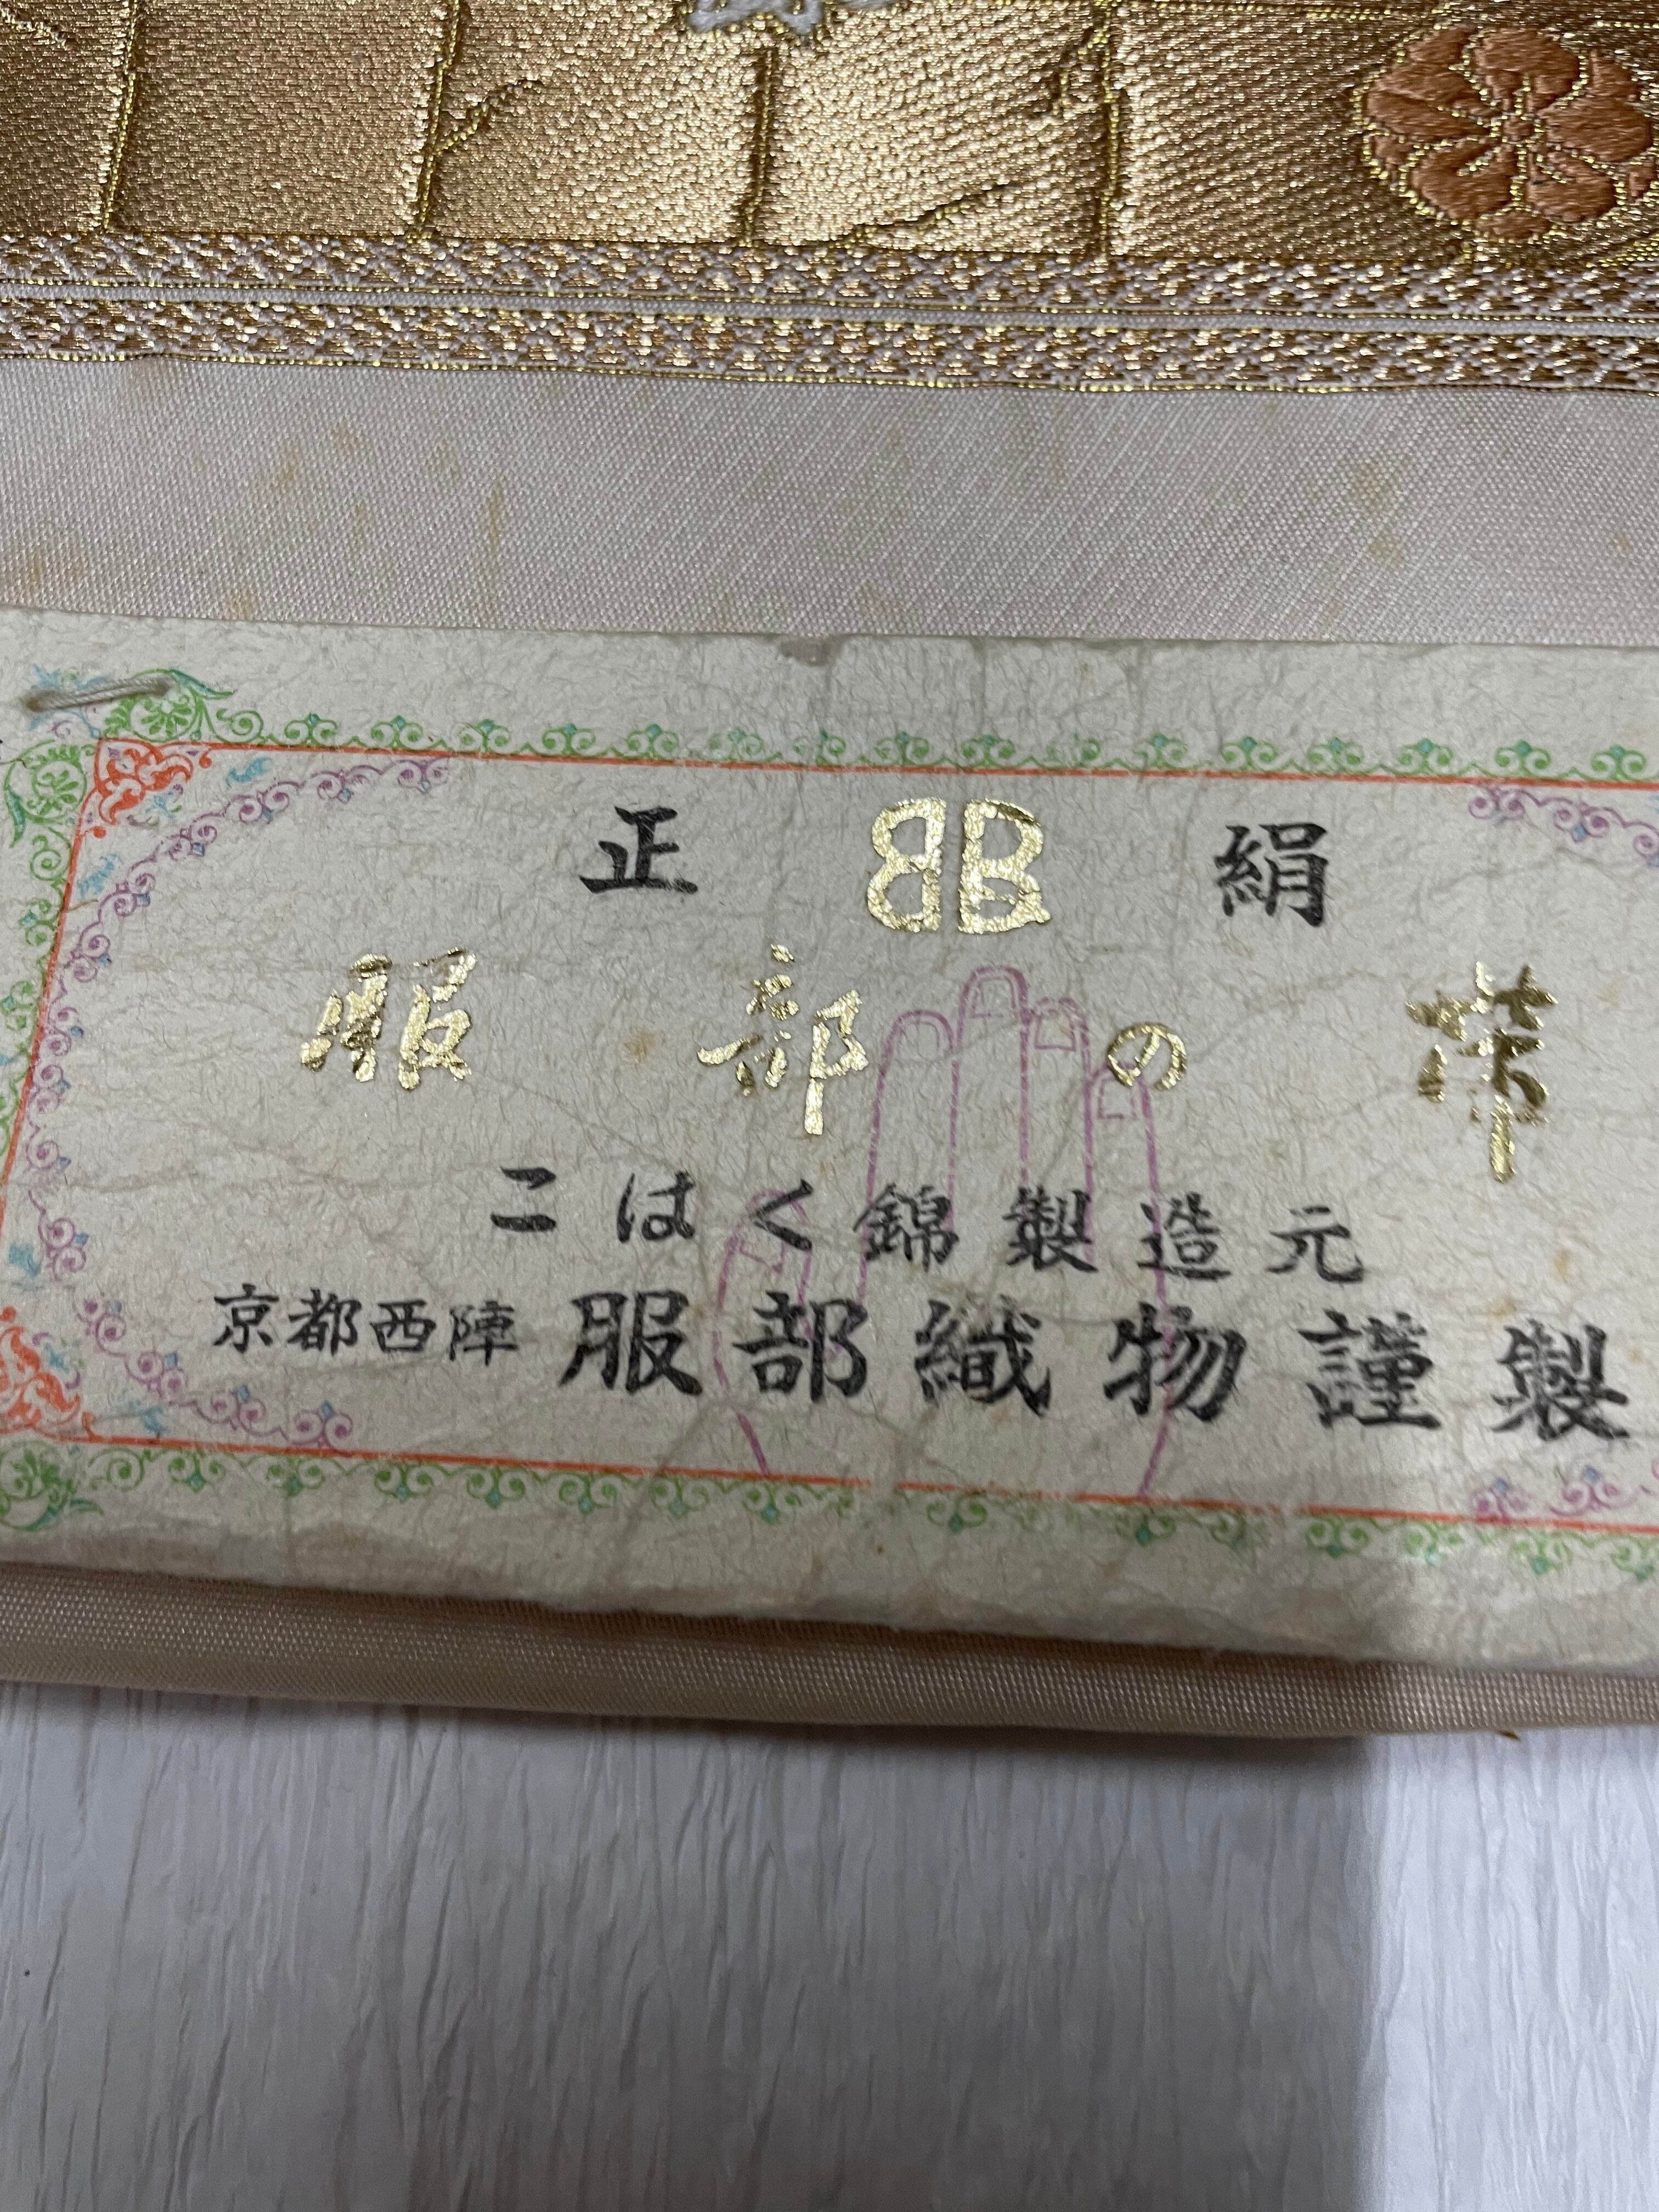 正 絹
服部の帯
こはく錦製造元
京都西陣 服部織物謹製